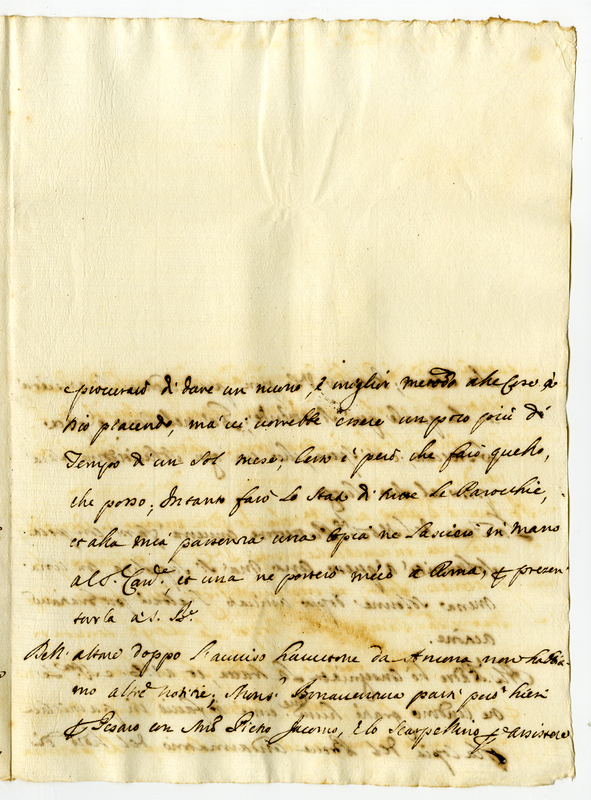 e procurarò di dare un nuovo, e miglior metodo alle Cose à
Dio piacendo, mà ci vorrebbe essere un poco più di
Tempo d'un sol mese; Certo è però che farò quello,
che posso; Intanto farò lo Stato di tutte le Parochie,
et alla mia partenza una Copia ne lasciarò in mano
al S.r Card.e, et una ne porterò meco à Roma, p presen
tarla a S. B.e
Dell' altare doppo l'avviso havutone da Ancona non habbia
mo altre notitie; Mons.r Bonaventura partì però hieri
p Pesaro con M.ro Pietro Jacomo, e lo Scarpellino p assistere